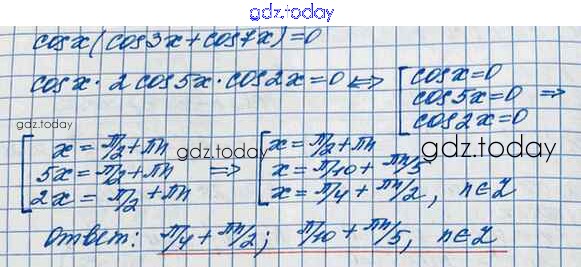 gdz.today
cosx(cos3x+cos7x)=0
cosx·2cos5x·cos2x=0 ⇔ [cosx=0
cos5x=0 ⇒
cos2x=0
gdz.today
[x=π/2+πn
5x=π/2+πn ⇒
2x=π/2+πn
gdz.today
[x=π/2+πn
x=π/10+πn/5
x=π/4+πn/2, n∈Z
gdz.today
Ответ: π/4+πn/2; π/10+πn/5, n∈Z